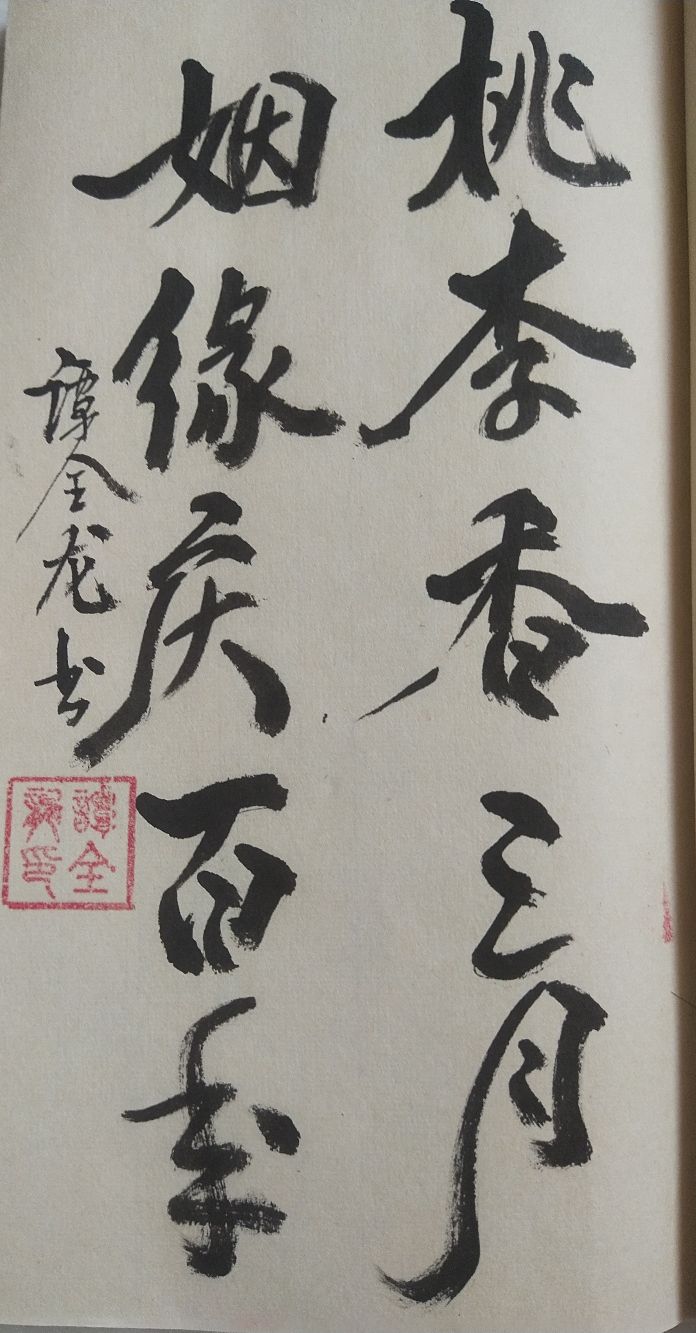 桃李香三月
姻缘庆百年
谭全龙书
譚全龍印